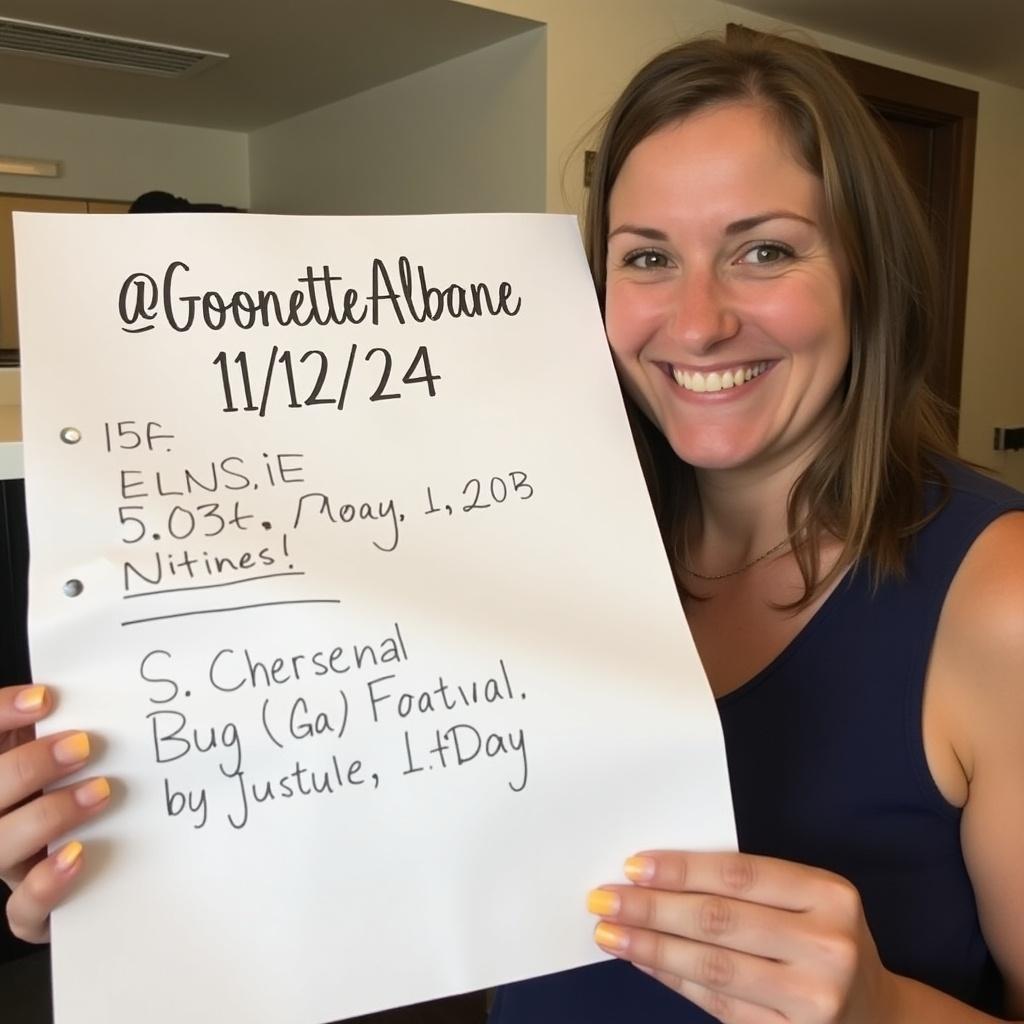 @GoonetteAlbane
11/12/24
15F.
ELNS.iE
5.03t. Moay. 1, 20B
Nitines!
S. Chersenal
Bug (Ga) Foatival.
by Justule, 1.tDay